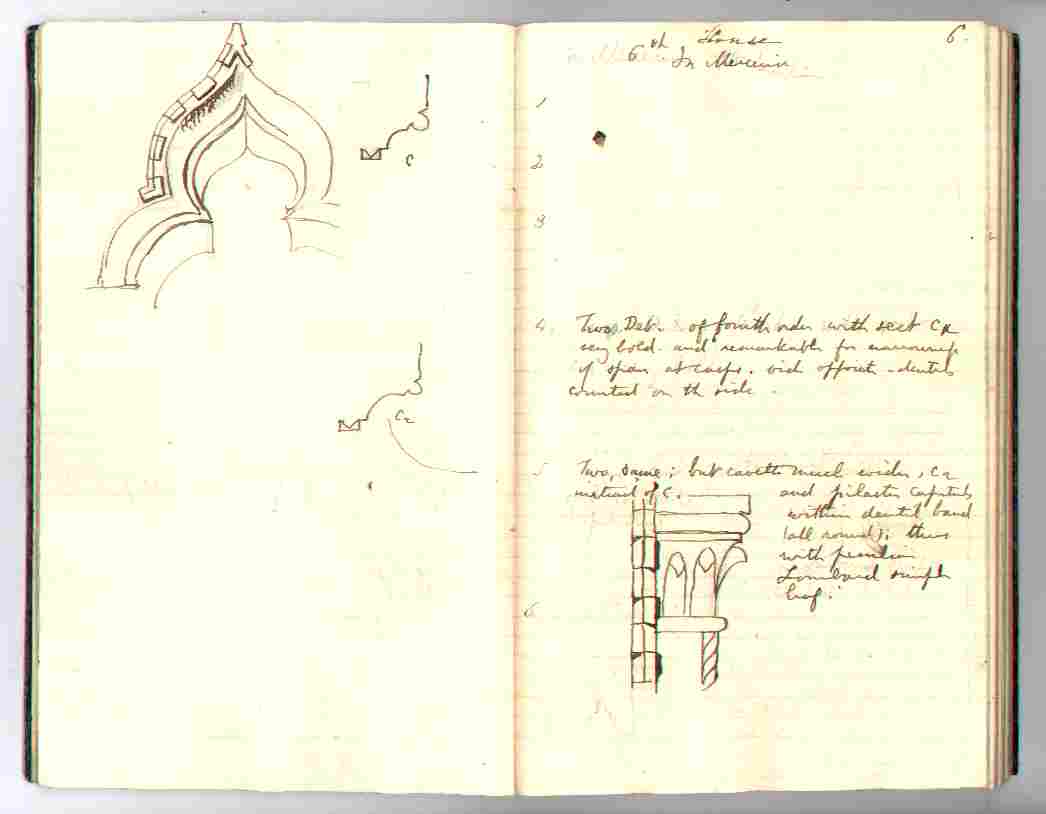 C
C2
House
6.
6th In Merceria.
1
2
3
4. Two, Det. of fourth order with sect C
very bold. and remarkable for narrowness
of span at cusps. vid opposite - dentils
counted on the side.
5 Two, same; but cavetto much wider, C2
instead of C. and pilaster capitals
within dentil band
(all round); thus
with peculiar
Lombard simple
leaf.
6